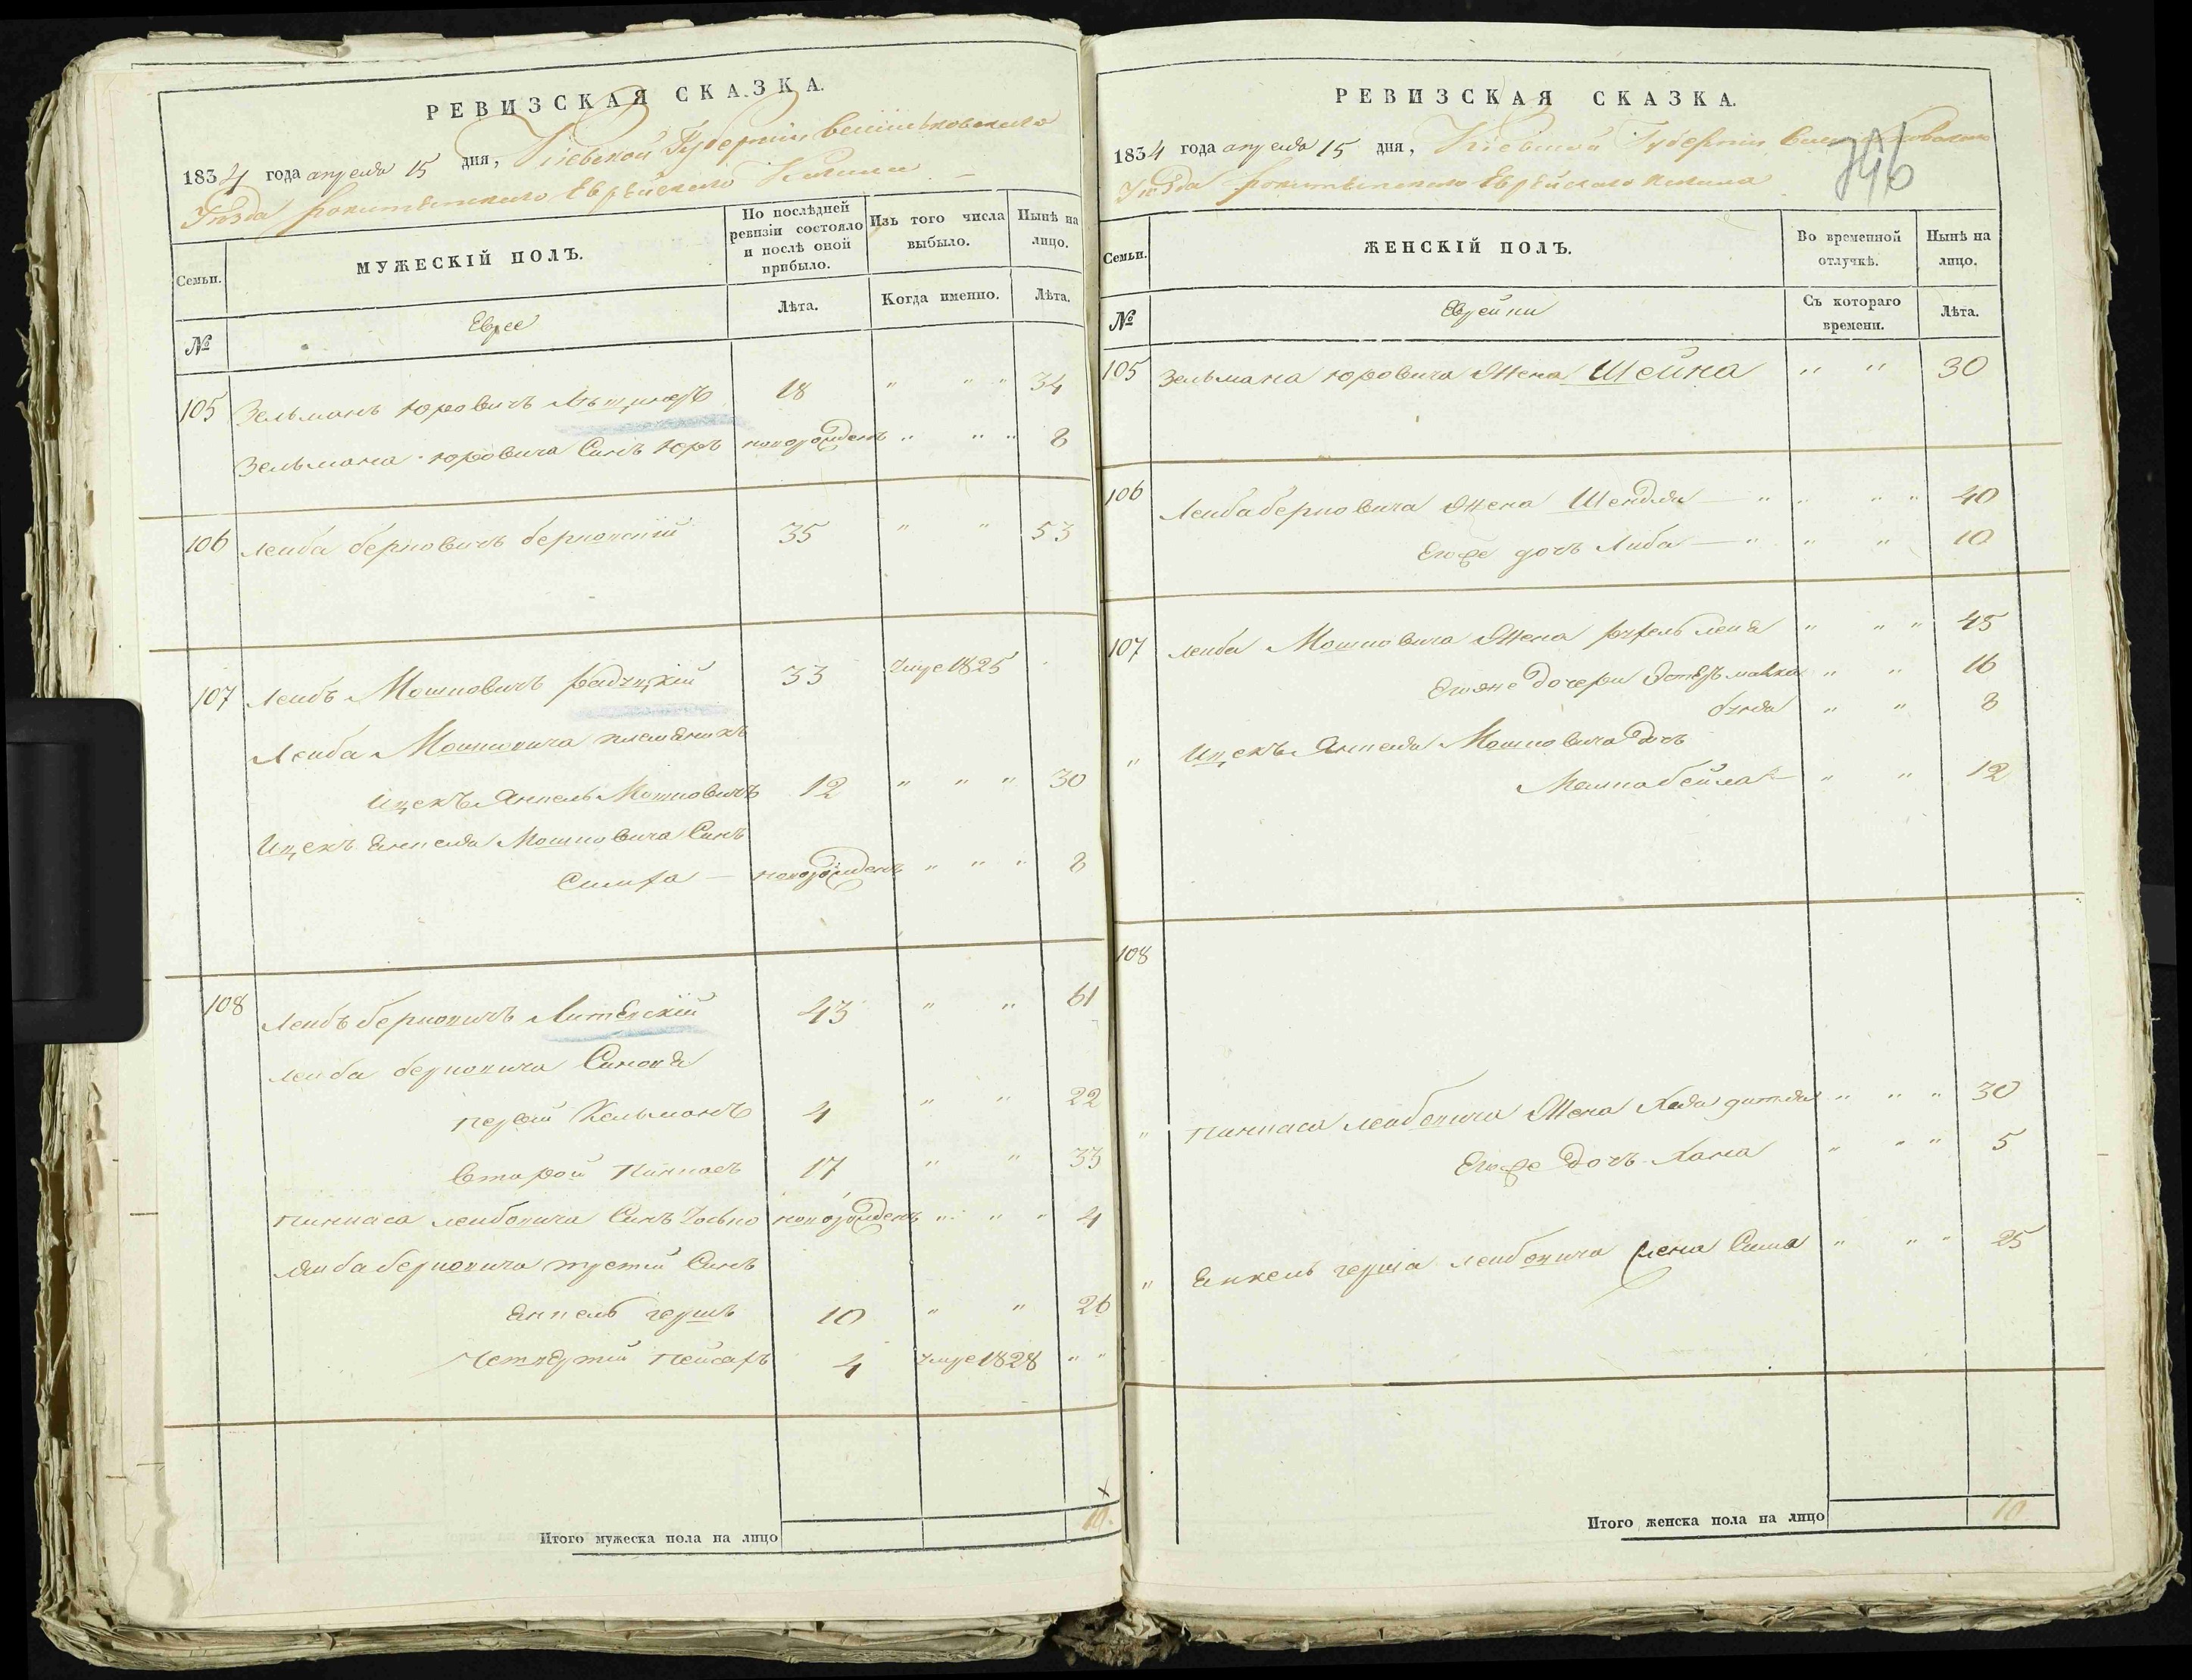 РЕВИЗСКАЯ СКАЗКА.
1834 года апреля 15 дня, Кіевской Губерніи Василковскаго
Уѣзда Рокитянского Еврейского Кагала
Семьи. МУЖЕСКІЙ ПОЛЪ. По послѣдней ревизіи состояло и послѣ оной прибыло. Изъ того числа выбыло. Нынѣ на лицо.
№ Еврее Лѣта. Когда именно. Лѣта.
105 Зельманъ Юровичъ 18 " " " 34
Зельмана Юровича Синъ Юръ новорожденъ " " " 8
106 Леиба берковичъ берковскій 35 " " 53
107 Леибъ Мошковичъ 33 умре 1825
Леиба Мошковича племяникъ
Ицекъ Янкель Мошковичъ 12 " " " 30
Ицекъ Янкеля Мошковича Синъ
Симха — новорожденъ " " " 8
108 Леибъ берковичъ 43 " " 61
Леиба берковича Синовя
первий Кельманъ 4 " " 22
Второй Пинкасъ 17 " " 33
Пинкаса леибовича Синъ новорожденъ " " " 4
Леиба берковича третій Синъ
Янкель гершъ 10 " " 26
Четвертій пейсахъ 4 умре 1828 " "
Итого мужеска пола на лицо 10.
РЕВИЗСКАЯ СКАЗКА.
346
1834 года апреля 15 дня, Кіевской Губерніи Василковскаго
Уѣзда Рокитянского Еврейского Кагала
Семьи. ЖЕНСКІЙ ПОЛЪ. Во временной отлучкѣ. Нынѣ на лицо.
№ Еврейки Съ котораго времени. Лѣта.
105 Зельмана Юровича Жена Шейна " " 30
106 Леиба берковича Жена Шендля — " " " " 40
Егоже дочъ Либа — " " " 10
107 Леиба Мошковича Жена рухель лея " " " 45
Егояже дочери Естеръ малка " " 16
бузя " " 8
" Ицекъ Янкеля Мошковича дочъ
бейла — " " 12
108
" Пинкаса леибовича Жена Хая " " " 30
Егоже дочъ Хана " " " 5
" Янкель герша леибовича жена Сима " " " 25
Итого женска пола на лицо 10